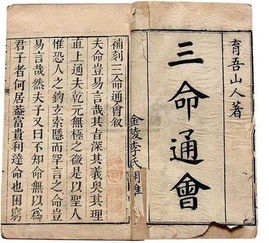 育吾山人著
三命通會
補刻三命通會敘
夫命豈易言哉其旨深其義奥其理
直上通夫乾元無極之後是以聖人
惟恐人之鉤玄索隱而罕言之命豈
易言哉然夫子又曰不知命無以爲
君子者何居蓋富貴利達命也困窮